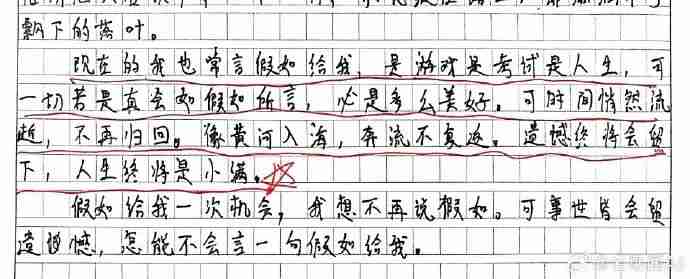 飘下的落叶。
现在的我也常言假如给我,是游戏是考试是人生,可
一切若是真会如假如所言,必是多么美好。可时间悄然流
逝,不再归回。像黄河入海,奔流不复返。遗憾终将会留
下,人生终将是小满。
假如给我一次机会,我想不再说假如。可事世皆会留
遗憾,怎能不会言一句假如给我。